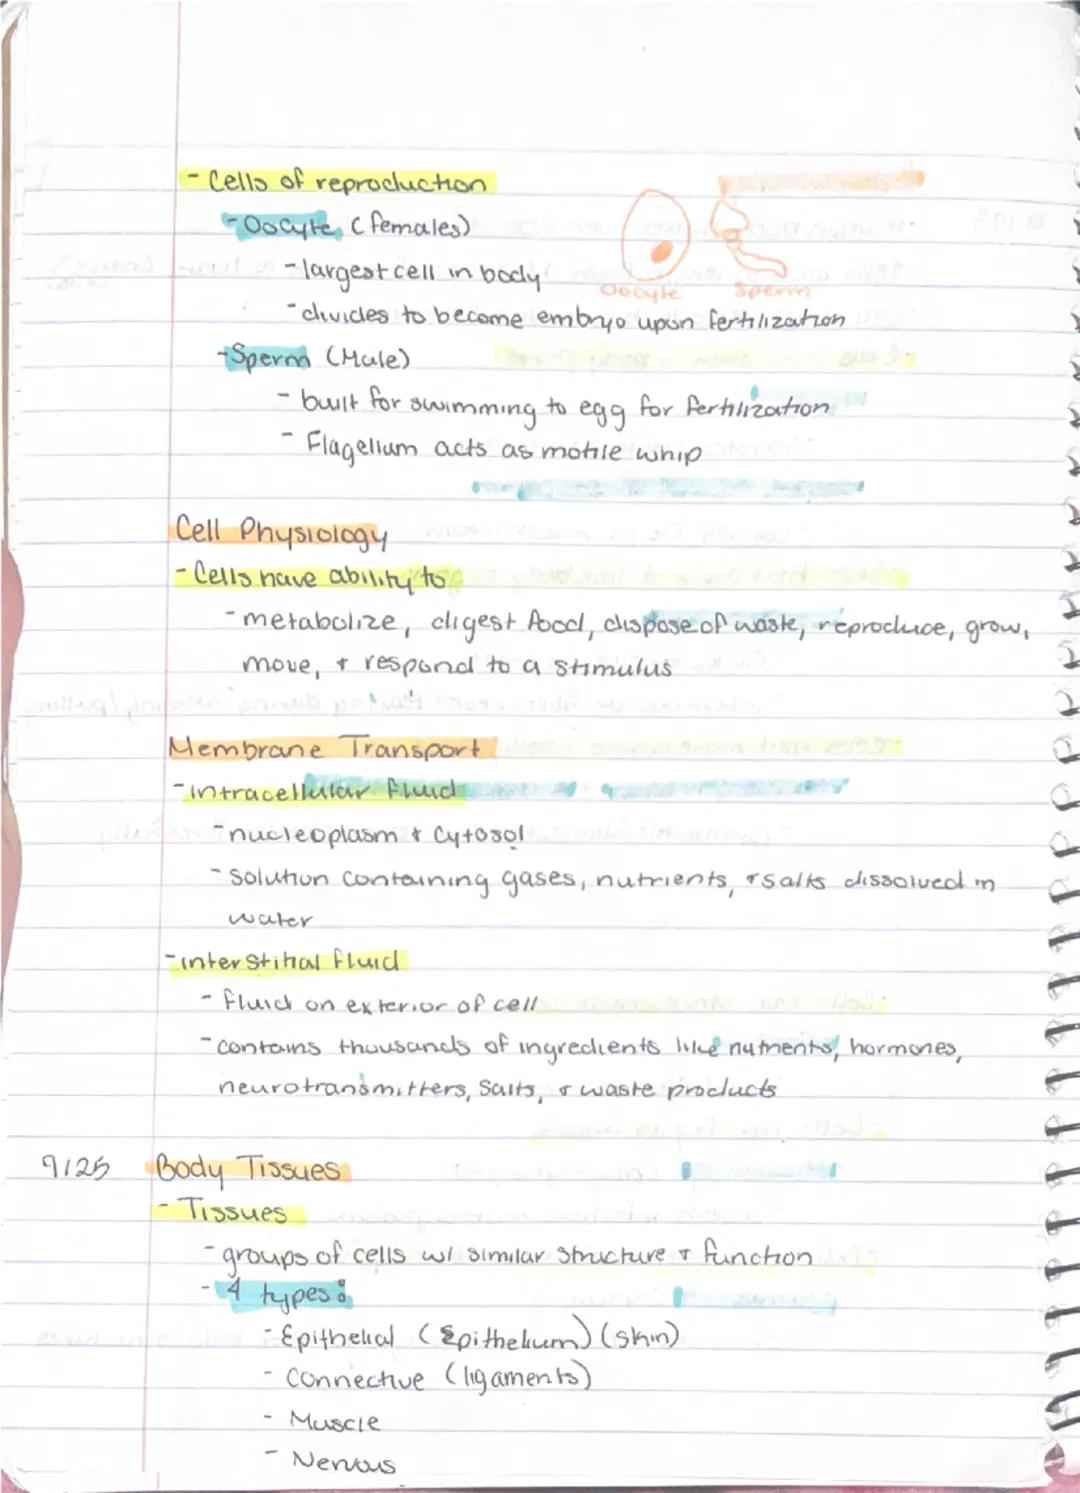 - Cells of reproduction
- Oocyte (females)
- largest cell in body
Oocyte Sperm
- divides to become embryo upon fertilization
- Sperm (Male)
- built for swimming to egg for fertilization
- Flagellum acts as motile whip
Cell Physiology
- Cells have ability to
- metabolize, digest food, dispose of waste, reproduce, grow,
move, + respond to a stimulus
Membrane Transport
- intracellular fluid
- nucleoplasm + cytosol
- Solution containing gases, nutrients, + salts dissolved in
water
- interstitial fluid
- fluid on exterior of cell
- contains thousands of ingredients like nutrients, hormones,
neurotransmitters, salts, + waste products
9/25 Body Tissues
- Tissues
- groups of cells w/ similar structure + function
- 4 types:
- Epithelial (Epithelium) (skin)
- Connective (ligaments)
- Muscle
- Nervous